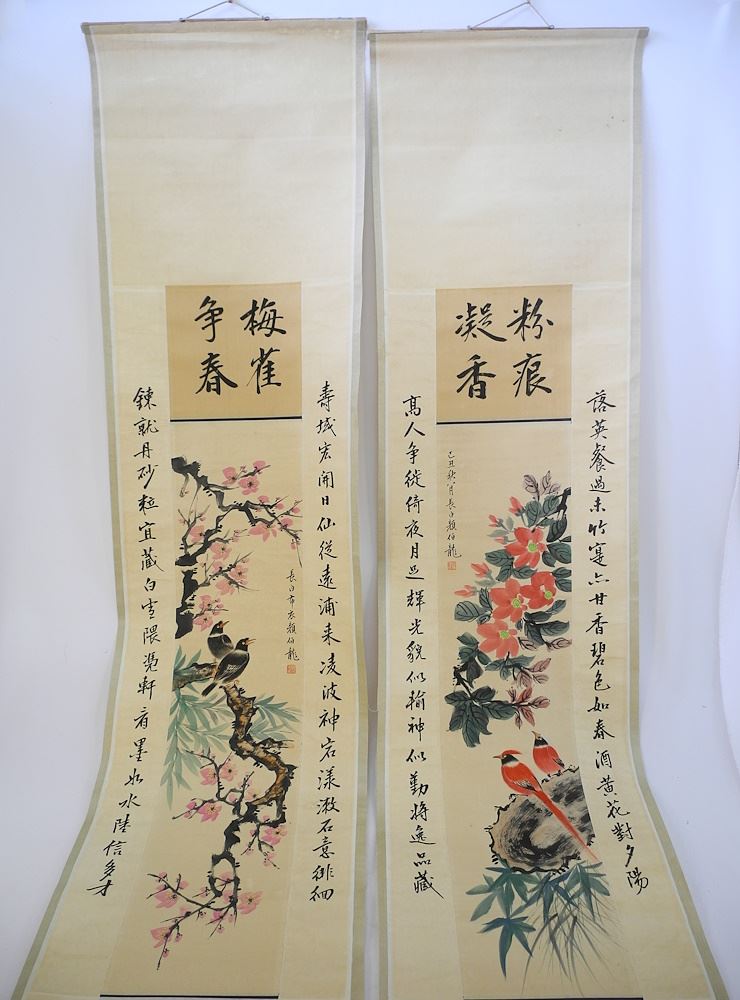 粉痕
凝香
落英餐過未竹寔六甘香碧色如春酒黃花對夕陽
己丑秋月長白顏伯龍
高人爭從倚夜月 輝光貌似輸神似勤將逸品藏
梅雀
争春
壽域宏開日仙從遠浦来凌波神宕漾激石意徘徊
長白布衣顏伯龍
鍊就丹砂粒宜藏白雪隈憑軒看墨 水陸信多才